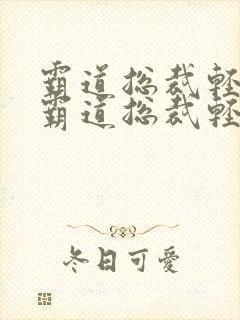 霸道总裁輕
霸道总裁輕
冬日可愛